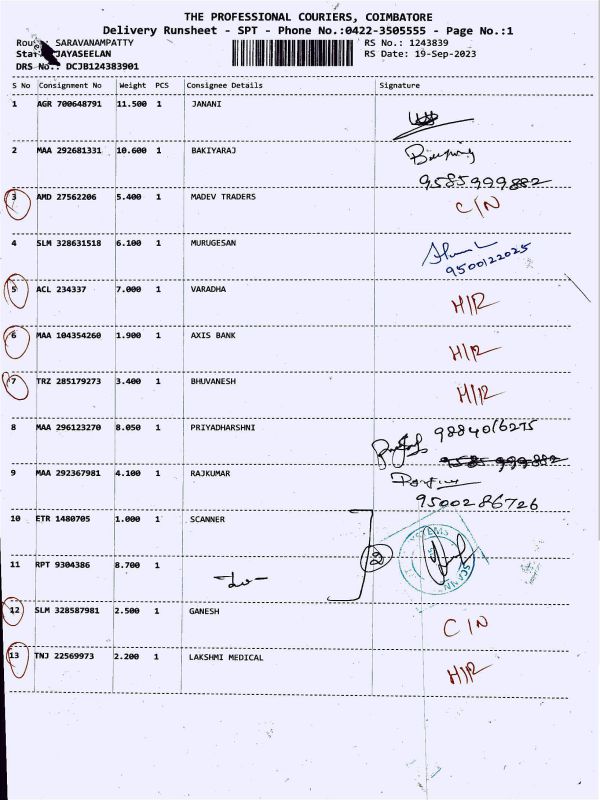 THE PROFESSIONAL COURIERS, COIMBATORE
Delivery Runsheet - SPT - Phone No.:0422-3505555 - Page No.:1
SARAVANAMPATTY RS No.: 1243839
JAYASEELAN RS Date: 19-Sep-2023
DRS No.: DCJB124383901
S No Consignment No Weight PCS Consignee Details Signature
1 AGR 700648791 11.500 1 JANANI
2 MAA 292681331 10.600 1 BAKIYARAJ
9585999882
3 AMD 27562206 5.400 1 MADEV TRADERS C/N
4 SLM 328631518 6.100 1 MURUGESAN
9500122025
5 ACL 234337 7.000 1 VARADHA H/R
6 MAA 104354260 1.900 1 AXIS BANK H/R
7 TRZ 285179273 3.400 1 BHUVANESH H/R
8 MAA 296123270 8.050 1 PRIYADHARSHNI
9 MAA 292367981 4.100 1 RAJKUMAR
9500286726
10 ETR 1480705 1.000 1 SCANNER
11 RPT 9304386 8.700 1
12 SLM 328587981 2.500 1 GANESH C/N
13 TNJ 22569973 2.200 1 LAKSHMI MEDICAL H/R